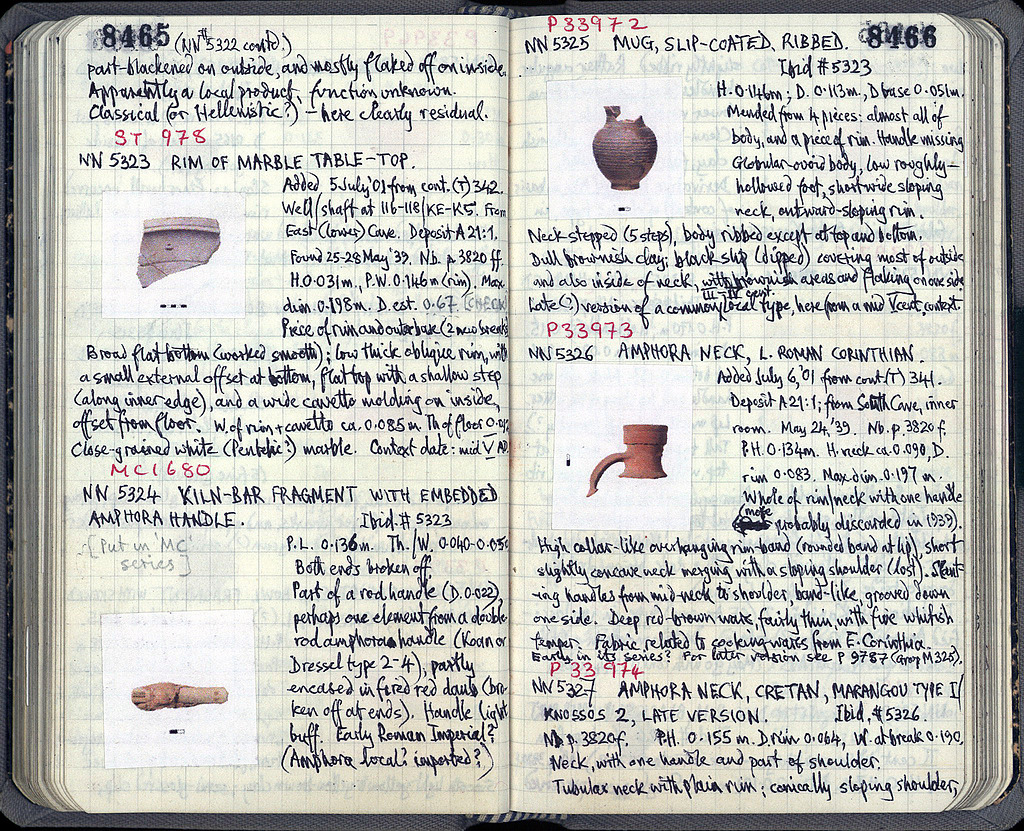 8465 (NN#5322 contd.)
part-blackened on outside, and mostly flaked off on inside.
Apparently a local product, function unknown.
Classical (or Hellenistic?) – here clearly residual.
ST 978
NN 5323 RIM OF MARBLE TABLE-TOP.
Added 5 July '01 from cont. (T) 342.
Well/shaft at 116-118/KE-KS. From
East (lower) Cave. Deposit A 21:1.
Found 25-28 May '39. Nb. p. 3820 ff.
H. 0.031m, P.W. 0.146m (rim), Max
dim 0.198m. D. est. 0.67 [CHECK]
Piece of rim and outer base (2 new breaks)
Broad flat bottom (worked smooth); low thick oblique rim, with
a small external offset at bottom, flat top with a shallow step
(along inner edge), and a wide cavetto molding on inside,
offset from floor. W. of rim + cavetto ca. 0.085m Th of floor
Close-grained white (Pentelic?) marble. Context date: mid V AD.
MC1680
NN 5324 KILN-BAR FRAGMENT WITH EMBEDDED
AMPHORA HANDLE. Ibid. # 5323
[Put in 'MC'
series]
P.L. 0.136m. Th./W. 0.040-0.050
Both ends broken off.
Part of a rod handle (D. 0.022),
perhaps one element from a double-
rod amphora handle (Koan or
Dressel type 2-4), partly
encased in fired red daub (bro-
ken off at ends). Handle light
buff. Early Roman Imperial?
(Amphora local? imported?)
P 33972
NN 5325 MUG, SLIP-COATED, RIBBED. 8466
Ibid # 5323
H. 0.146m; D. 0.113m, D base 0.051m.
Mended from 4 pieces: almost all of
body, and a piece of rim. Handle missing
Globular-ovoid body, low roughly-
hollowed foot, short wide sloping
neck, outward-sloping rim.
Neck stepped (5 steps), body ribbed except at top and bottom.
Dull brownish clay; black slip (dipped) covering most of outside
and also inside of neck, with brownish areas and flaking on one side
III-IV cent.
Late (?) version of a common local type, here from a mid V cent. context.
P 33973
NN 5326 AMPHORA NECK, L. ROMAN CORINTHIAN.
Added July 6, '01 from cont (T) 341.
Deposit A 21:1; from South Cave, inner
room. May 24, '39. Nb. p. 3820 f.
P.H. 0.134m. H. neck ca. 0.090, D.
rim 0.083. Max dim. 0.197 m.
Whole of rim/neck with one handle
(more probably discarded in 1939).
High collar-like overhanging rim-band (rounded band at lip), short
slightly concave neck merging with a sloping shoulder (lost). Slant-
ing handles from mid-neck to shoulder, band-like, grooved down
one side. Deep red-brown ware, fairly thin, with fine whitish
temper. Fabric related to cooking wares from E. Corinthia.
Early in its series? For later version see P 9787 (Group M 325).
P 33 974
NN 5327 AMPHORA NECK, CRETAN, MARANGOU TYPE I/
KNOSSOS 2, LATE VERSION. Ibid, # 5326.
Nb p. 3820 f. P.H. 0.155 m. D. rim 0.064, W. at break 0.190.
Neck, with one handle and part of shoulder.
Tubular neck with plain rim; conically sloping shoulder,